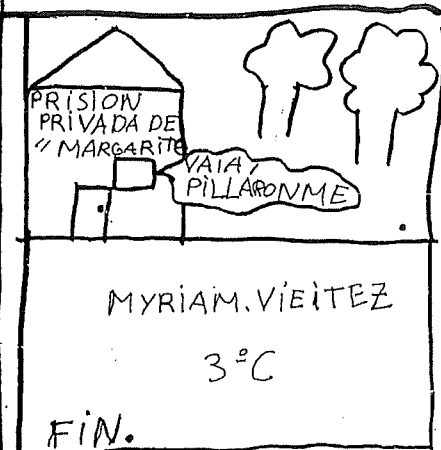 PRISION
PRIVADA DE
"MARGARITO
VAIA,
PILLARONME
MYRIAM.VIEITEZ
3ºC
FIN.